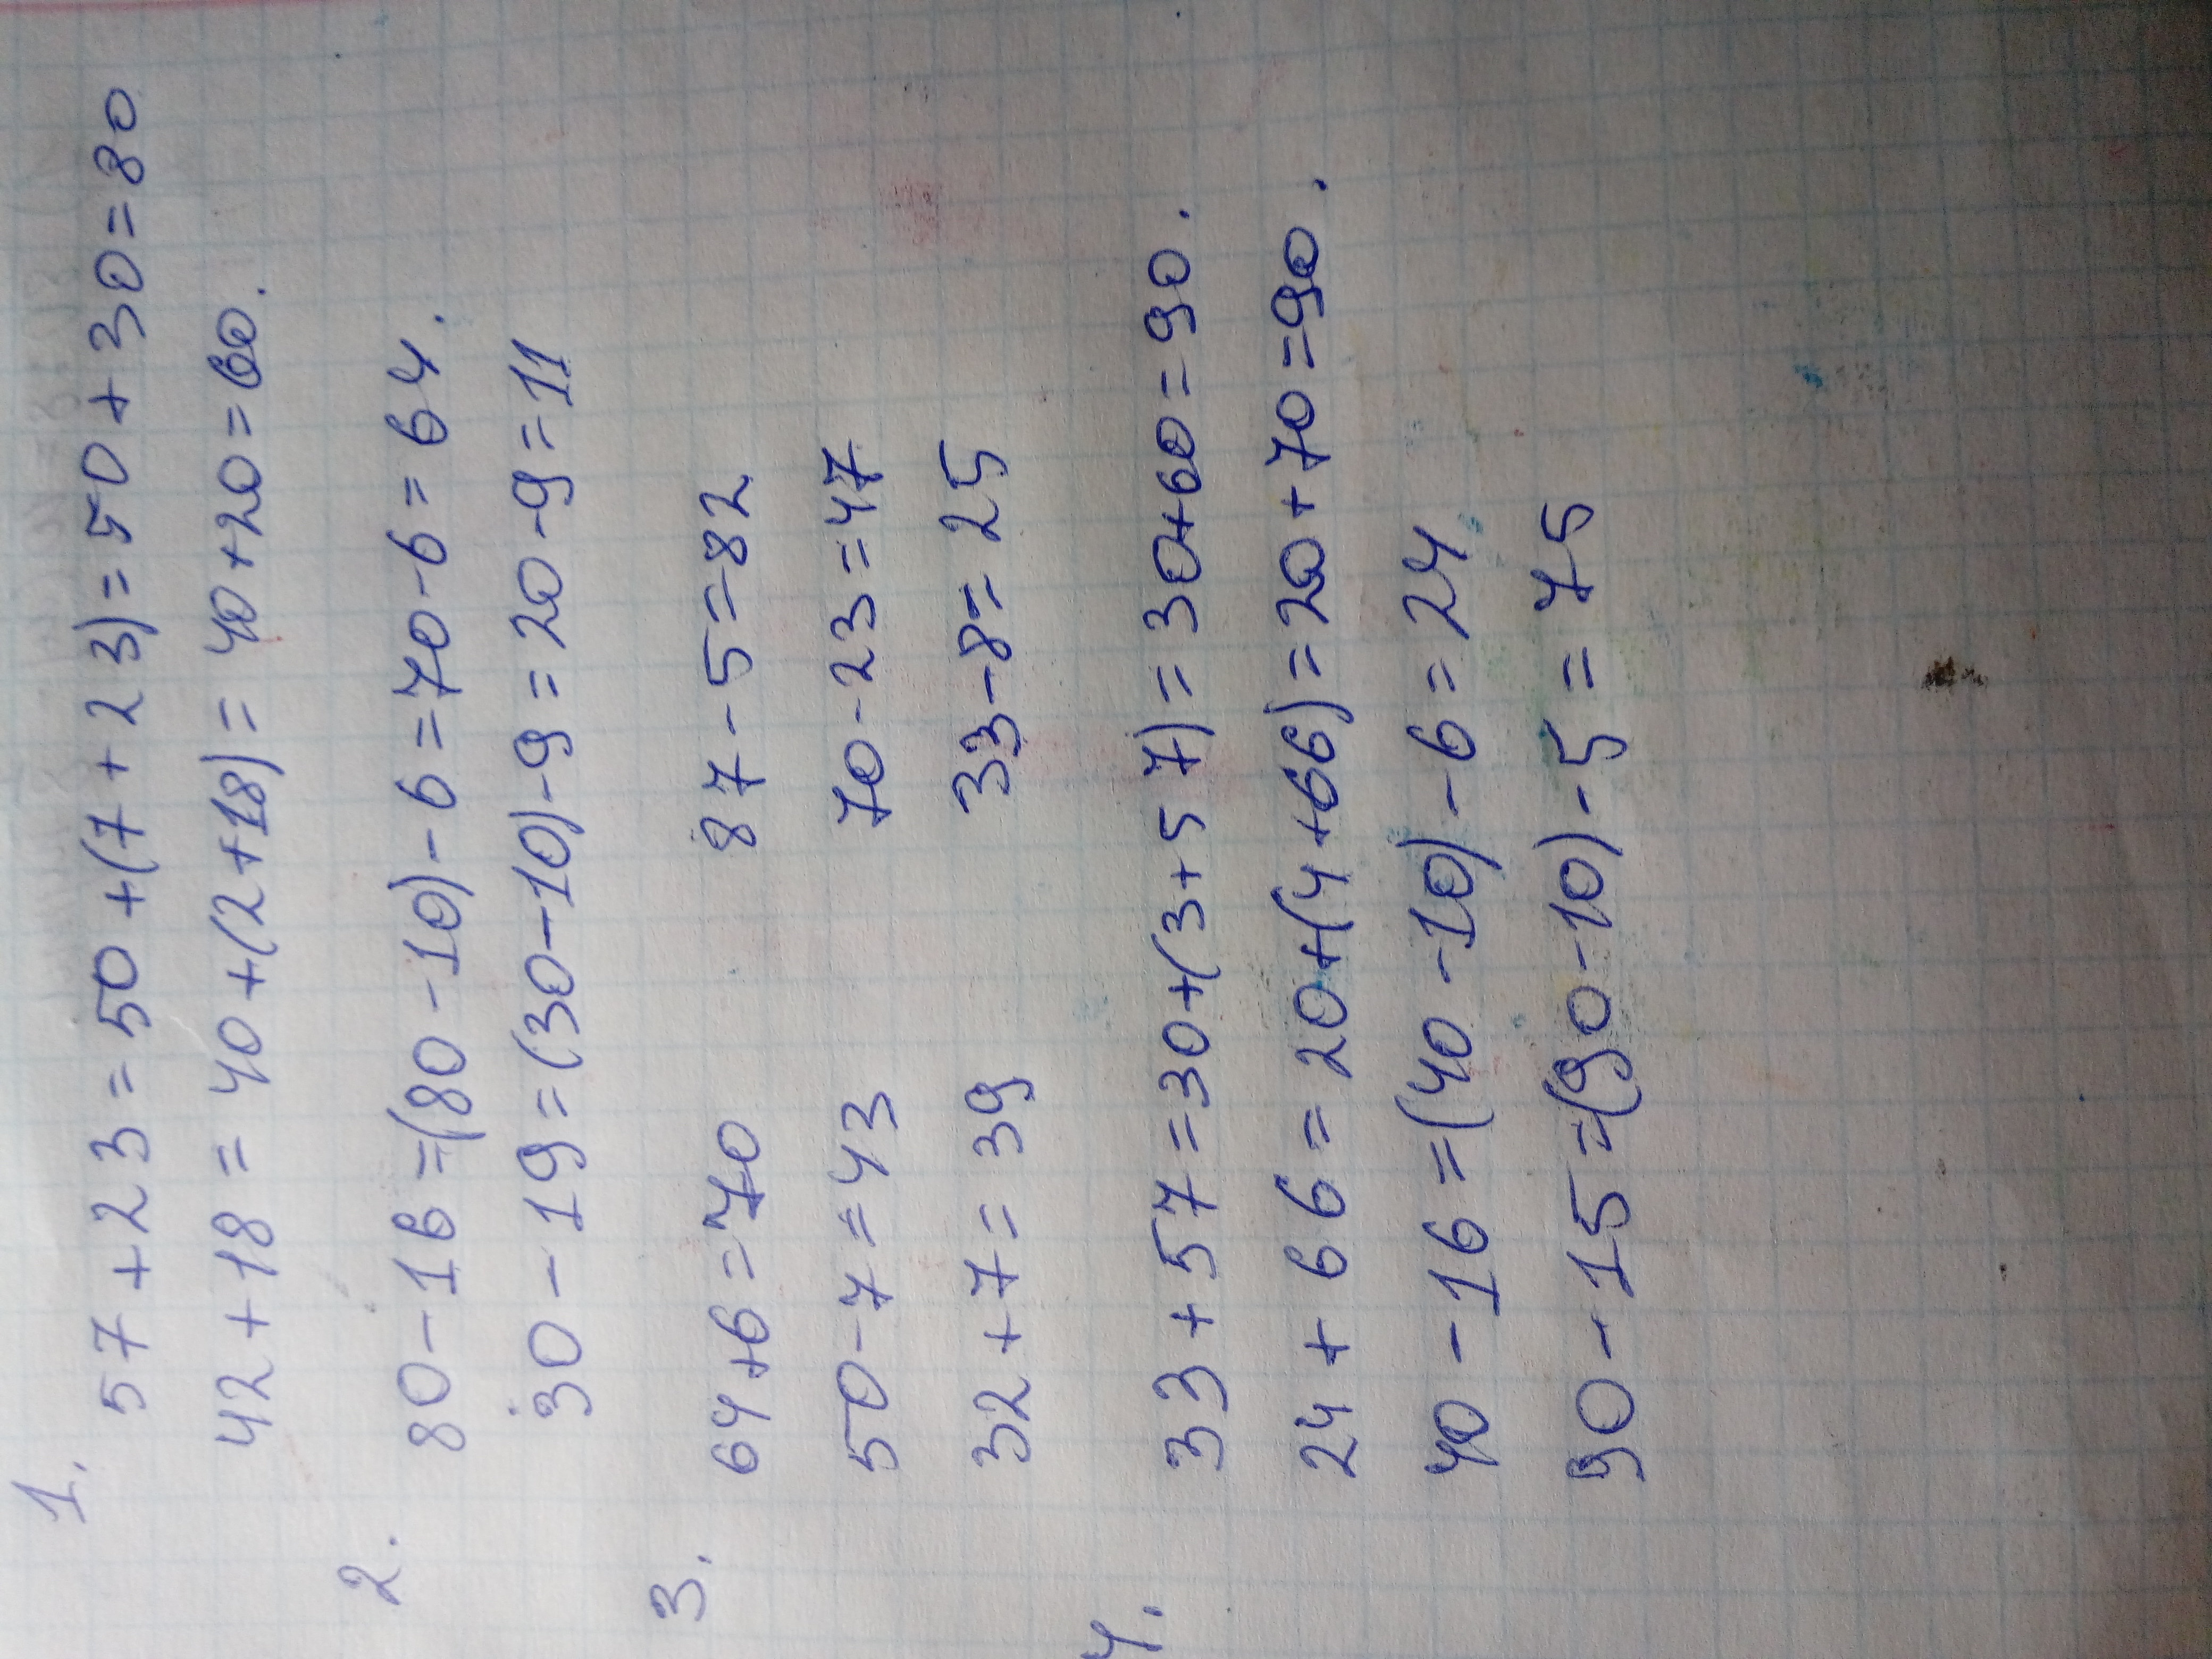 1.
57+23=50+(7+23)=50+30=80
42+18=40+(2+18)=40+20=60.
2.
80-16=(80-10)-6=70-6=64.
30-19=(30-10)-9=20-9=11
3.
64+6=70 87-5=82
50-7=43 70-23=47
32+7=39 33-8=25
4.
33+57=30+(3+57)=30+60=90.
24+66=20+(4+66)=20+70=90.
40-16=(40-10)-6=24
90-15=(90-10)-5=75